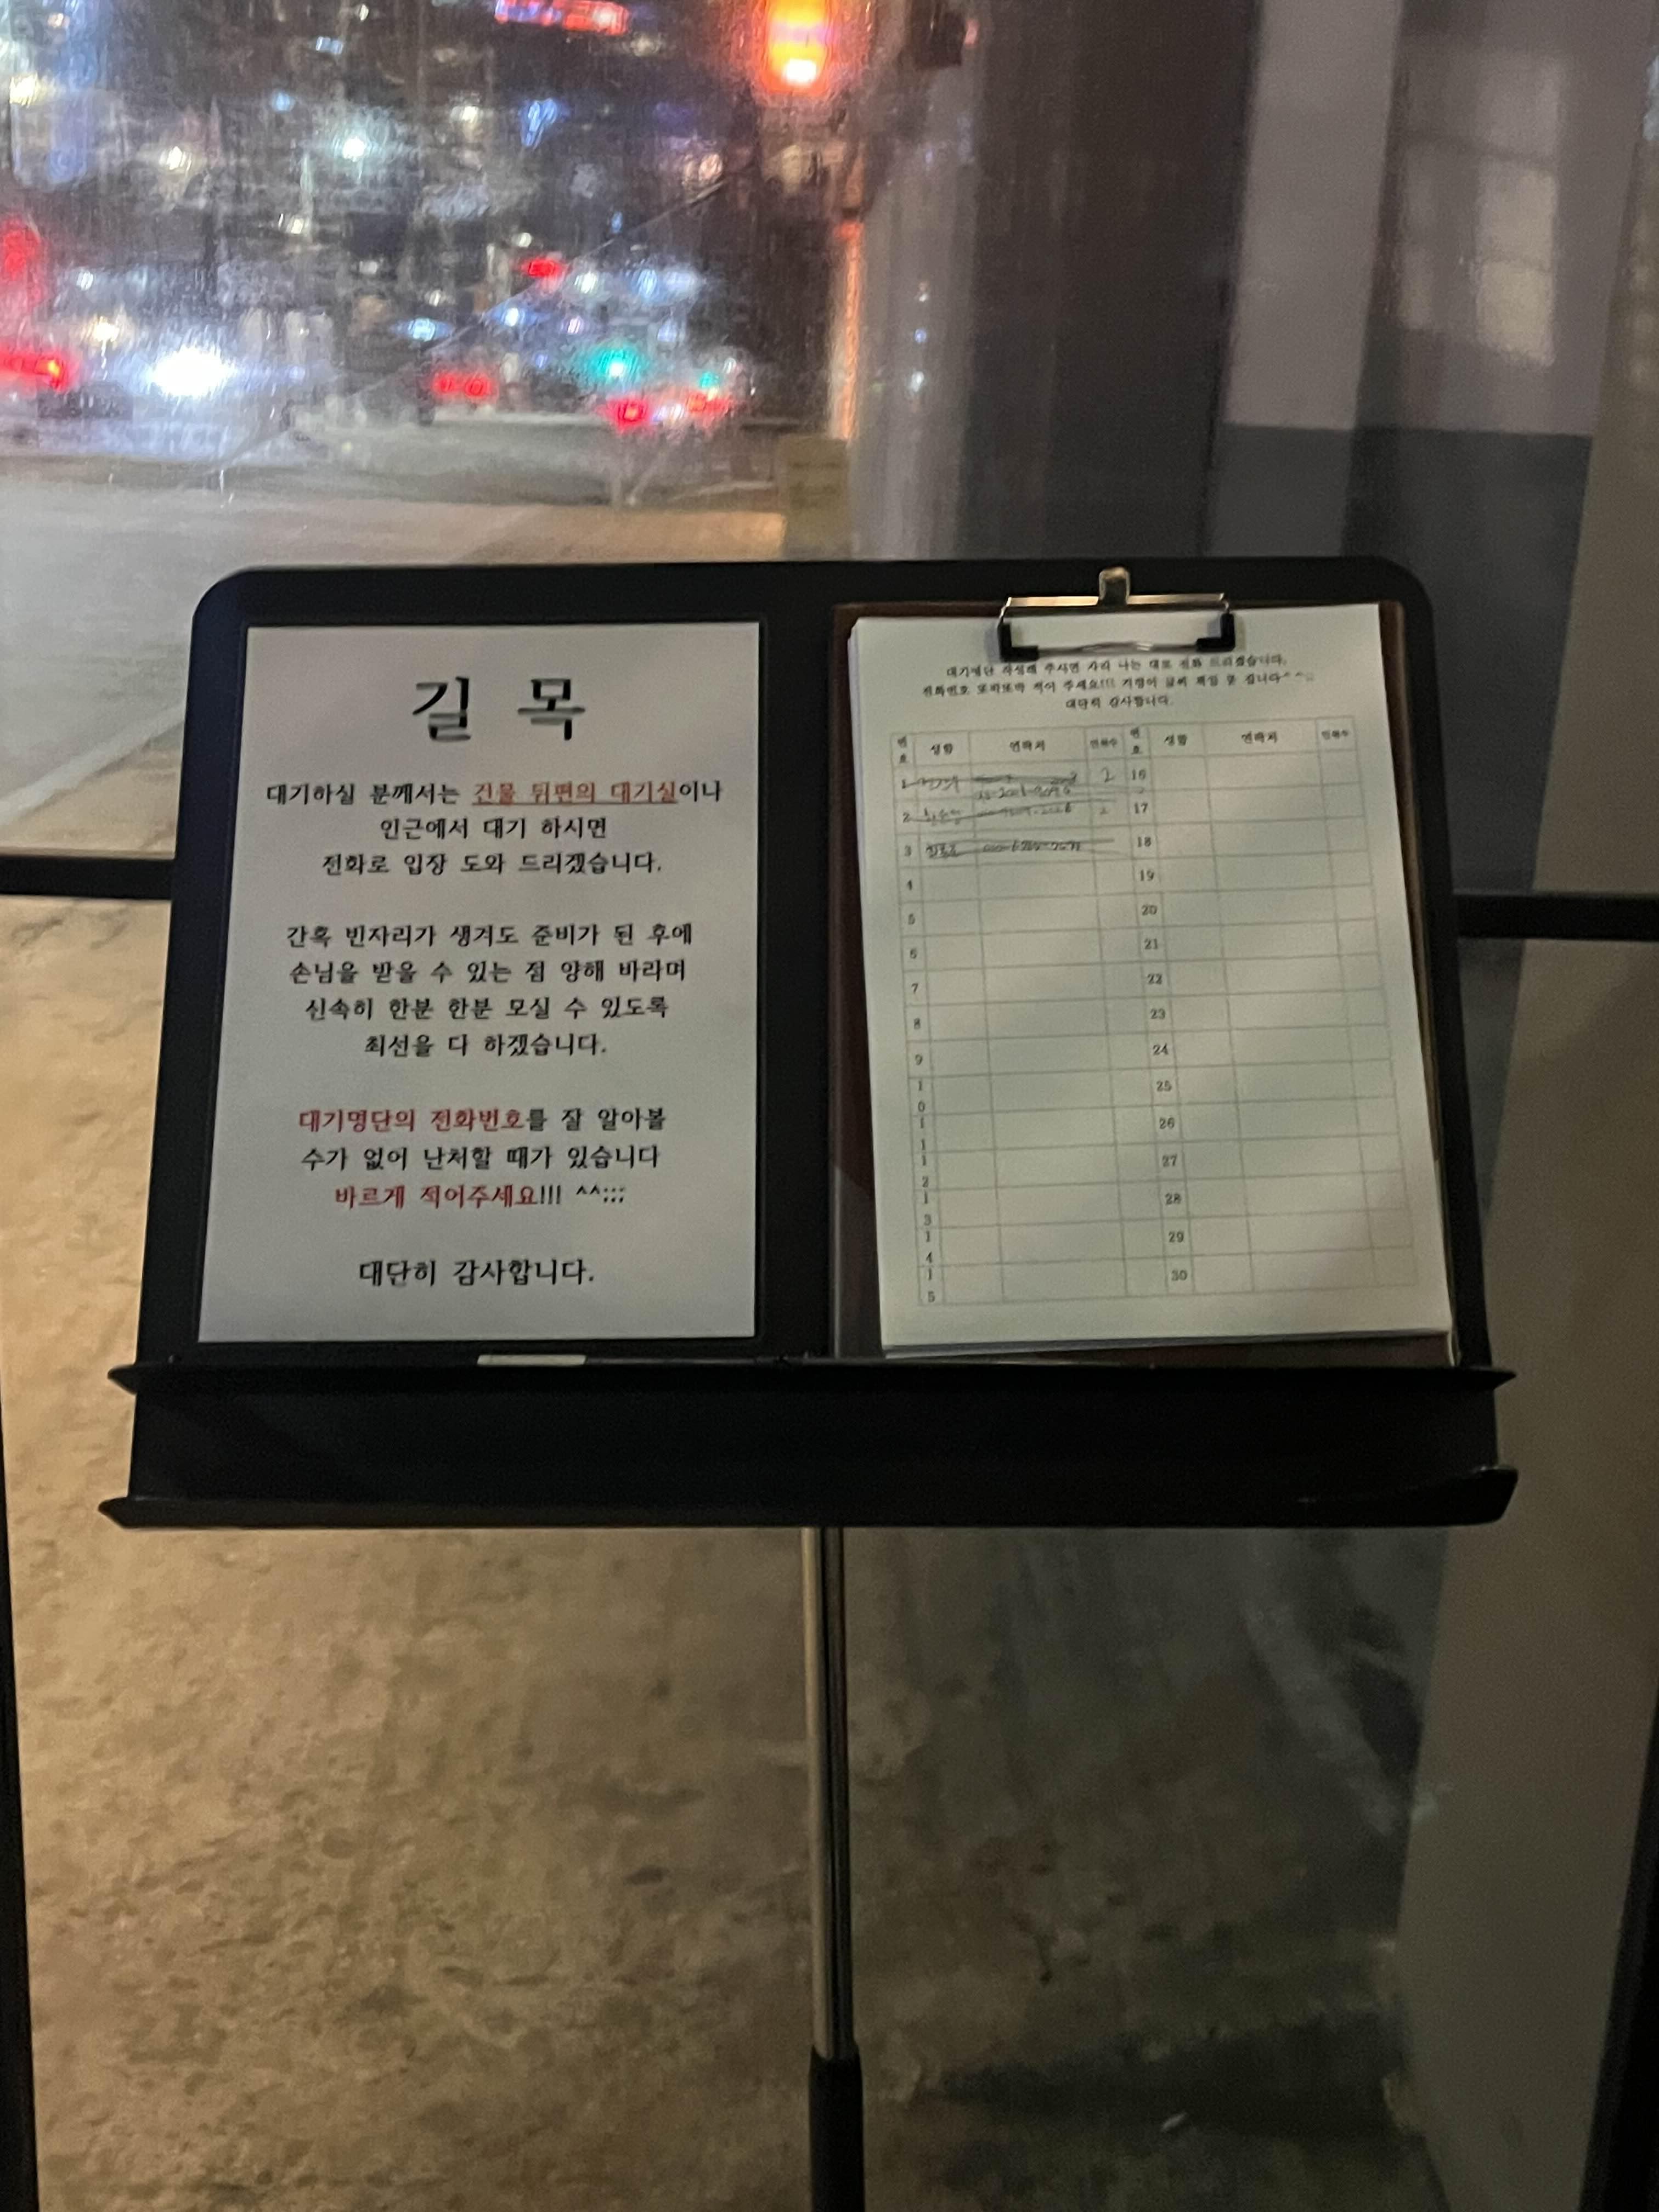 길 목
대기하실 분께서는 건물 뒤편의 대기실이나
인근에서 대기 하시면
전화로 입장 도와 드리겠습니다.
간혹 빈자리가 생겨도 준비가 된 후에
손님을 받을 수 있는 점 양해 바라며
신속히 한분 한분 모실 수 있도록
최선을 다 하겠습니다.
대기명단의 전화번호를 잘 알아볼
수가 없어 난처할 때가 있습니다
바르게 적어주세요!!! ^^;;;
대단히 감사합니다.
대기명단 작성해 주시면 자리 나는 대로 전화 드리겠습니다.
전화번호 또박또박 적어 주세요!!! 걱정이 글씨 책임 못 집니다^^;;
대단히 감사합니다.
번호 성함 연락처 인원수 번호 성함 연락처 인원수
1 2 16
2 2 17
3 18
4 19
5 20
6 21
7 22
8 23
9 24
10 25
11 26
12 27
13 28
14 29
15 30